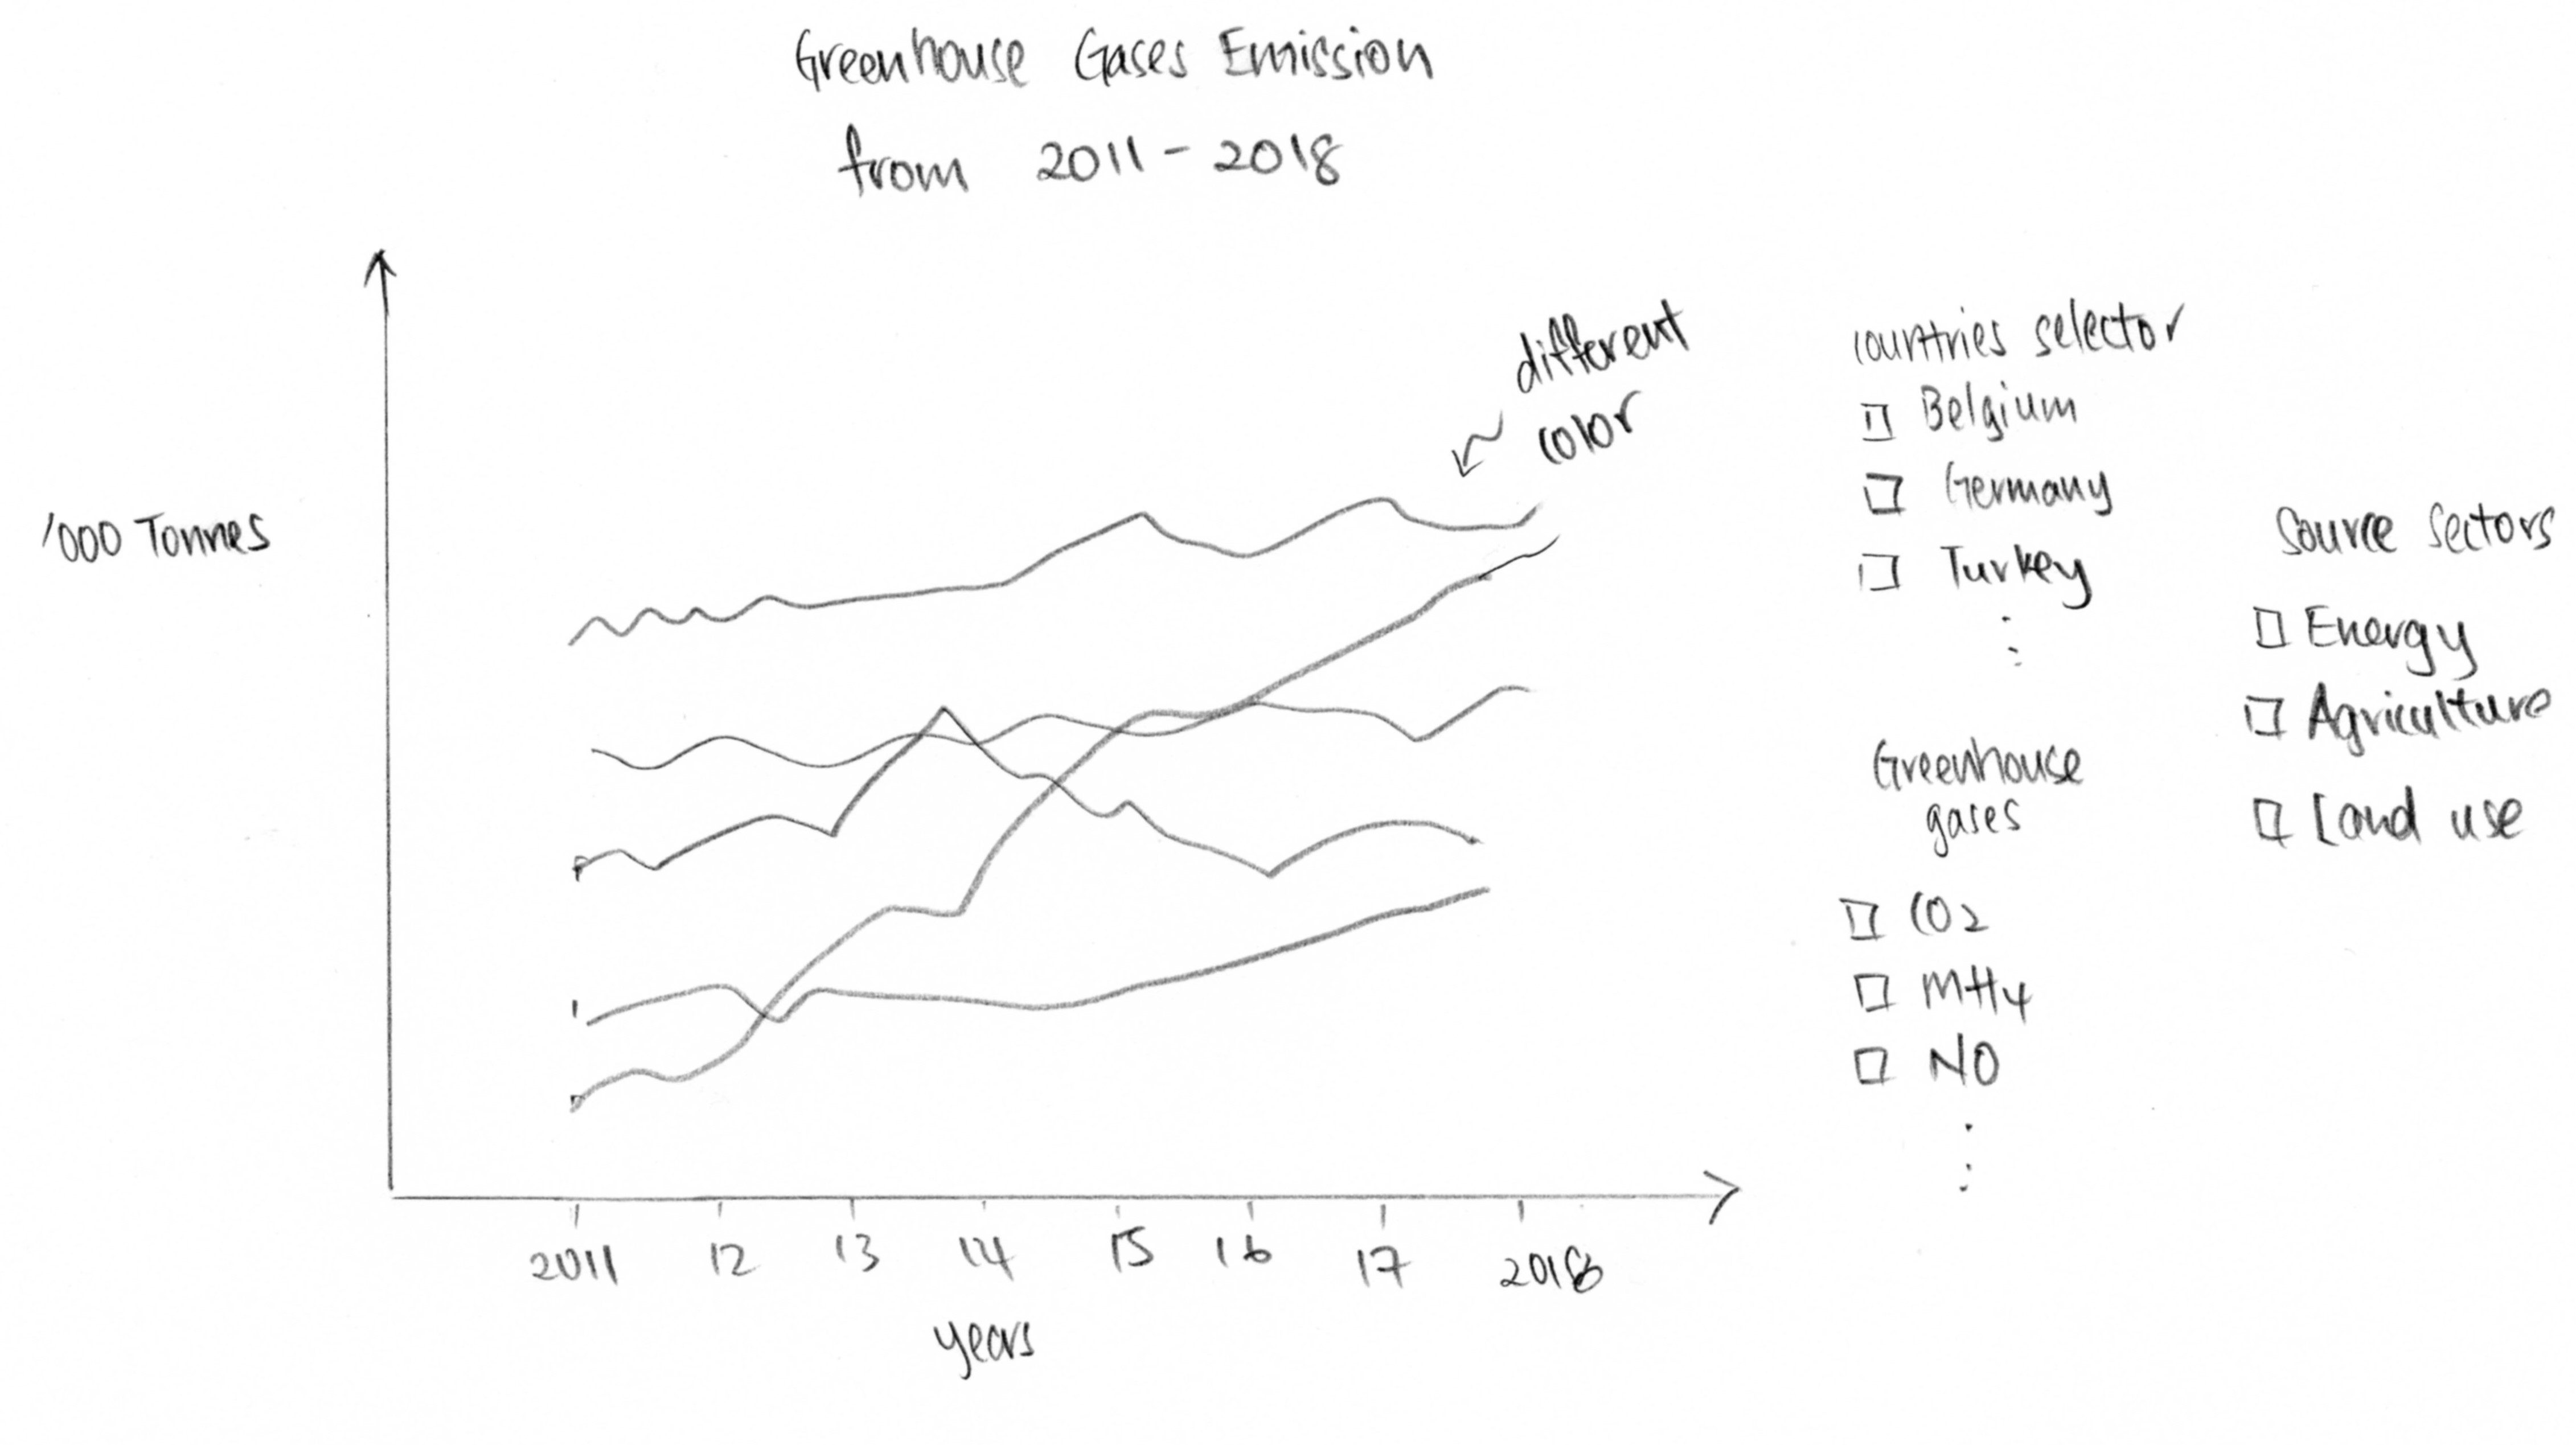 Greenhouse Gases Emission
from 2011 - 2018
different
color
'000 Tonnes
countries selector
Belgium
Germany
Turkey
Source Sectors
Energy
Agriculture
Land use
Greenhouse
gases
CO2
MH4
NO
2011 12 13 14 15 16 17 2018
years